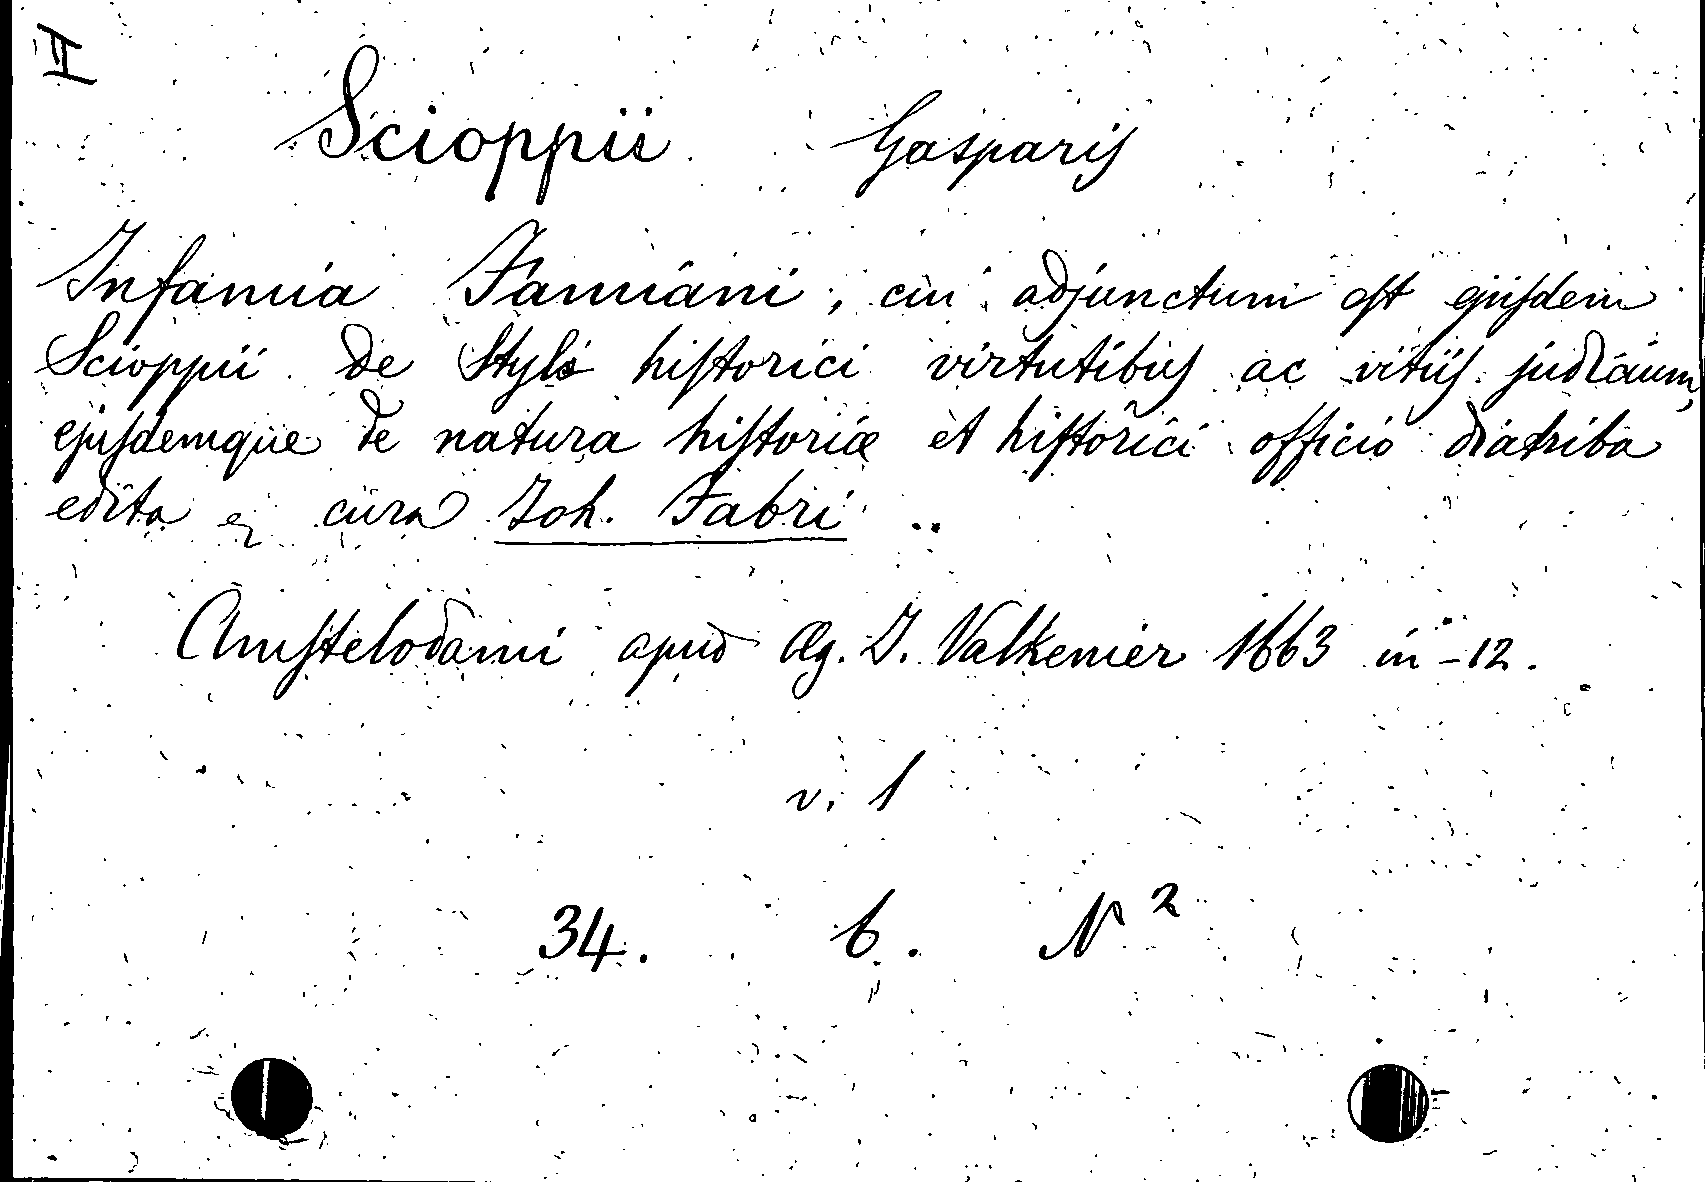 II
Scioppii Gasparis
Infamia Famiani, cui adjunctum est ejusdem
Scioppii de Styli historici virtutibus ac vitiis judicium,
ejusdemque de natura historiæ et historici officio diatriba
edita ex cura Joh. Fabri ..
Amstelodami apud Æg. J. Valkenier 1663 in-12.
v. 1
34. 6. N 2